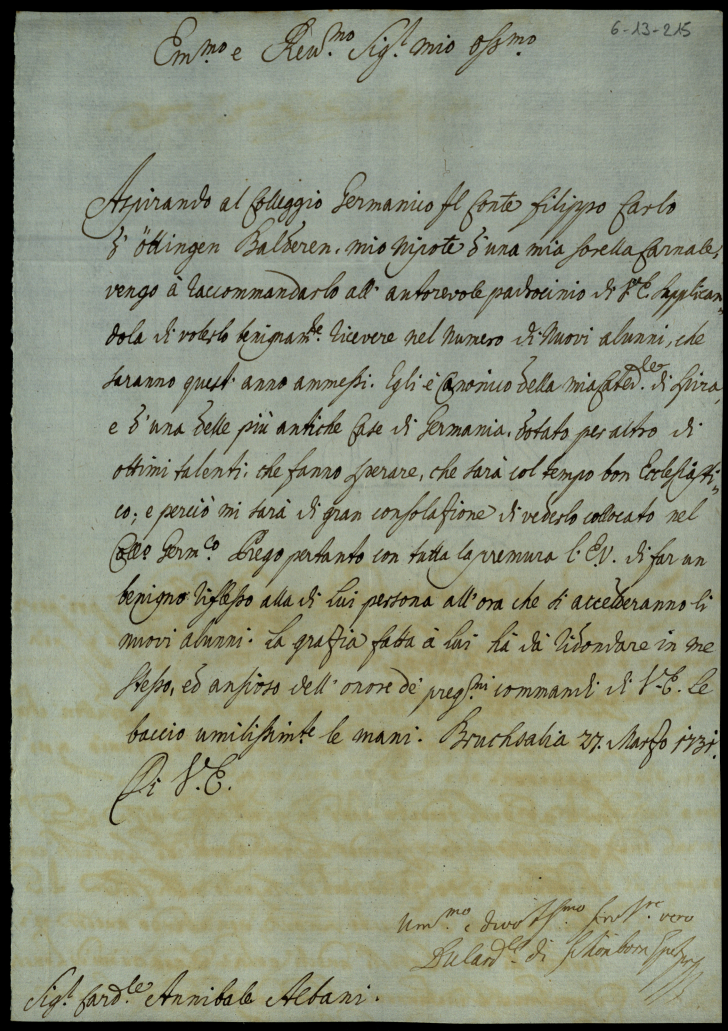 6-13-215
Em.mo e Rev.mo Sig.r mio oss.mo
Aspirando al Colleggio Germanico Il Conte Filippo Carlo
d'Öttingen Balderen. mio Nipote d'una mia sorella Carnale,
vengo à raccommandarlo all' autorevole padrocinio di V.E. supplican-
dola di volerlo benignam.te ricevere nel Numero di Nuovi alunni, che
saranno quest' anno ammessi. Egli è Canonico della mia Cated.le di Spira,
e d'una delle più antiche Case di Germania, dotato per altro di
ottimi talenti, che fanno sperare, che sarà col tempo bon Ecclesiasti-
co; e perciò mi sarà di gran consolazione di vederlo collocato nel
Coll.o Germ.co Prego pertanto con tutta la premura l'E.V. di far un
benigno riflesso alla di lui persona all'ora che si accederanno li
nuovi alunni. La grazia fatta à lui hà dà ridondare in me
stesso, ed ansioso dell' onore de' preg.mi commandi di V.E. le
baccio umilissim.te le mani. Bruchsalia 27. Marzo 1731.
Di V.E.
Um.mo e divotiss.mo serv.re vero
Il Card.le di Schönborn
Sig.r Card.le Annibale Albani.